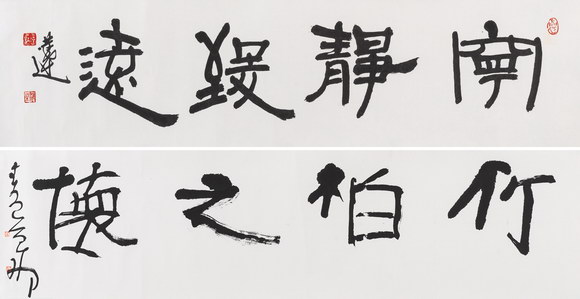 寧靜致遠
竹柏之懷